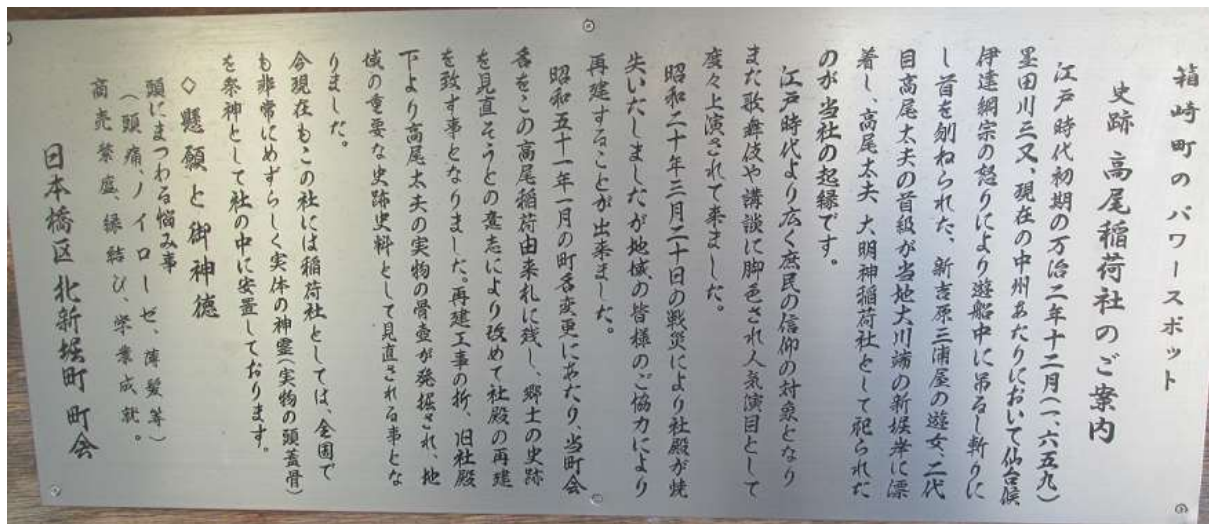 箱崎町のパワースポット
史跡 高尾稲荷社のご案内
江戸時代初期の万治二年十二月(一、六五九)
墨田川三又、現在の中州あたりにおいて仙台候
伊達綱宗の怒りにより遊船中に吊るし斬りに
し首を刎ねられた、新吉原三浦屋の遊女、二代
目高尾太夫の首級が当地大川端の新堀岸に漂
着し、高尾太夫 大明神稲荷社として祀られた
のが当社の起縁です。
江戸時代より広く庶民の信仰の対象となり
また歌舞伎や講談に脚色され人気演目として
度々上演されて来ました。
昭和二十年三月二十日の戦災により社殿が焼
失いたしましたが地域の皆様のご協力により
再建することが出来ました。
昭和五十一年一月の町名変更にあたり、当町会
名をこの高尾稲荷由来札に残し、郷土の史跡
を見直そうとの意志により改めて社殿の再建
を致す事となりました。再建工事の折、旧社殿
下より高尾太夫の実物の骨壺が発掘され、地
域の重要な史跡史料として見直される事とな
りました。
今現在もこの社には稲荷社としては、全国で
も非常にめずらしく実体の神霊(実物の頭蓋骨)
を祭神として社の中に安置しております。
◇懸願と御神徳
頭にまつわる悩み事
(頭痛、ノイローゼ、薄髪等)
商売繁盛、縁結び、学業成就。
日本橋区 北新堀町 町会